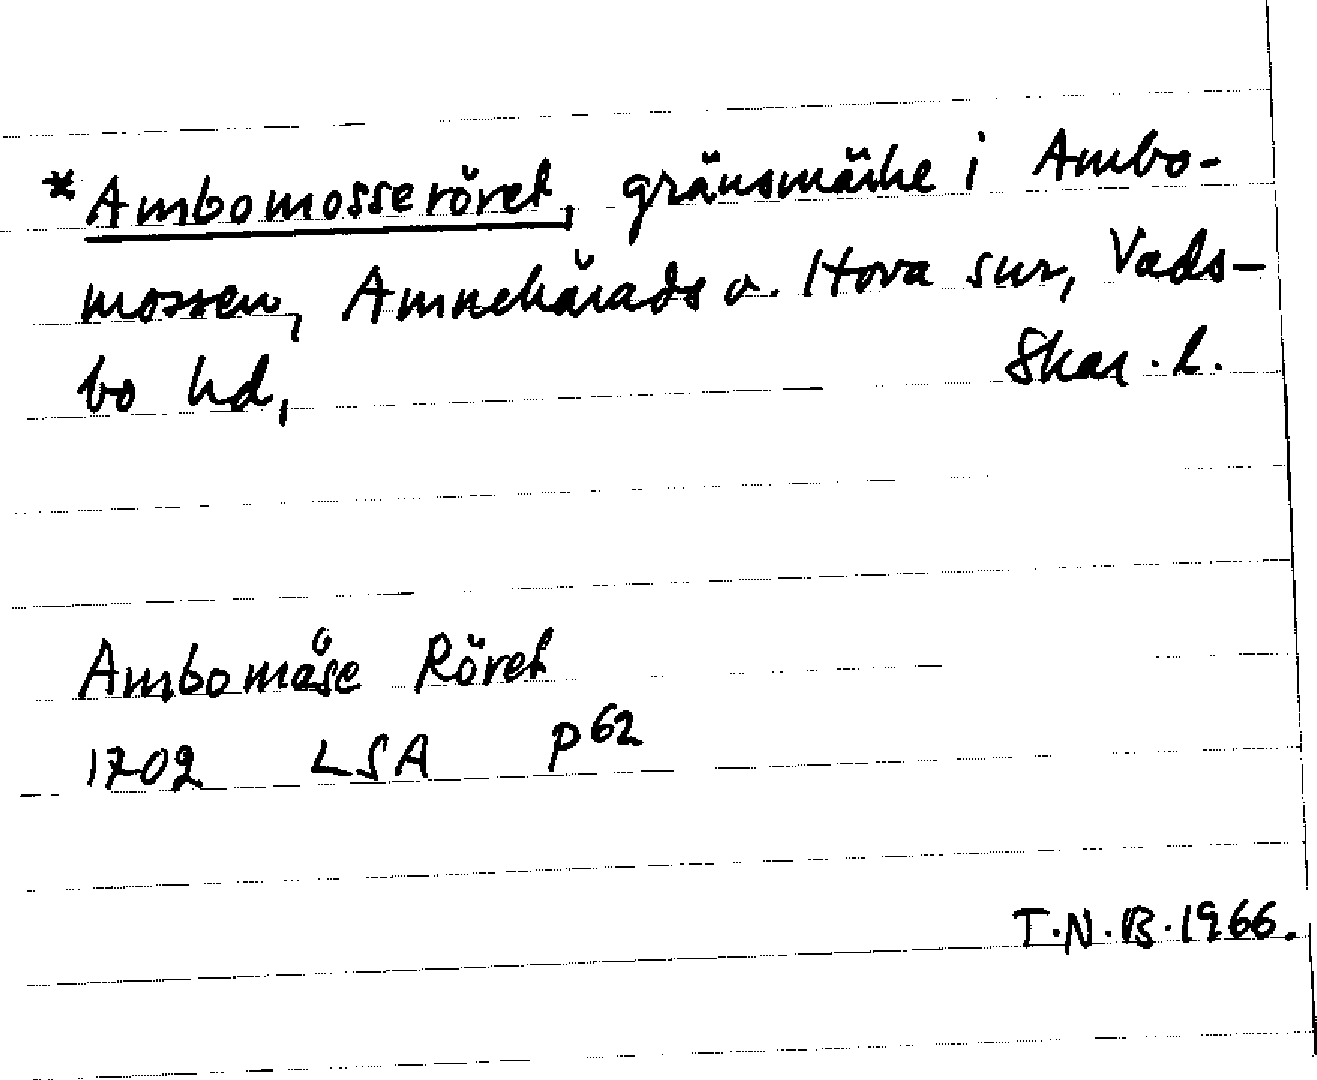 *Ambomosseröret, gränsmärke i Ambo-
mossen, Amnehärads o. Hova snr, Vads-
bo hd, Skar. l.
Ambomåse Röret
1702 LSA P 62
T.N.B. 1966.